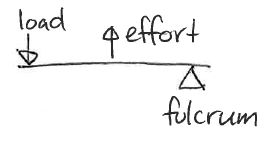 load
effort
fulcrum